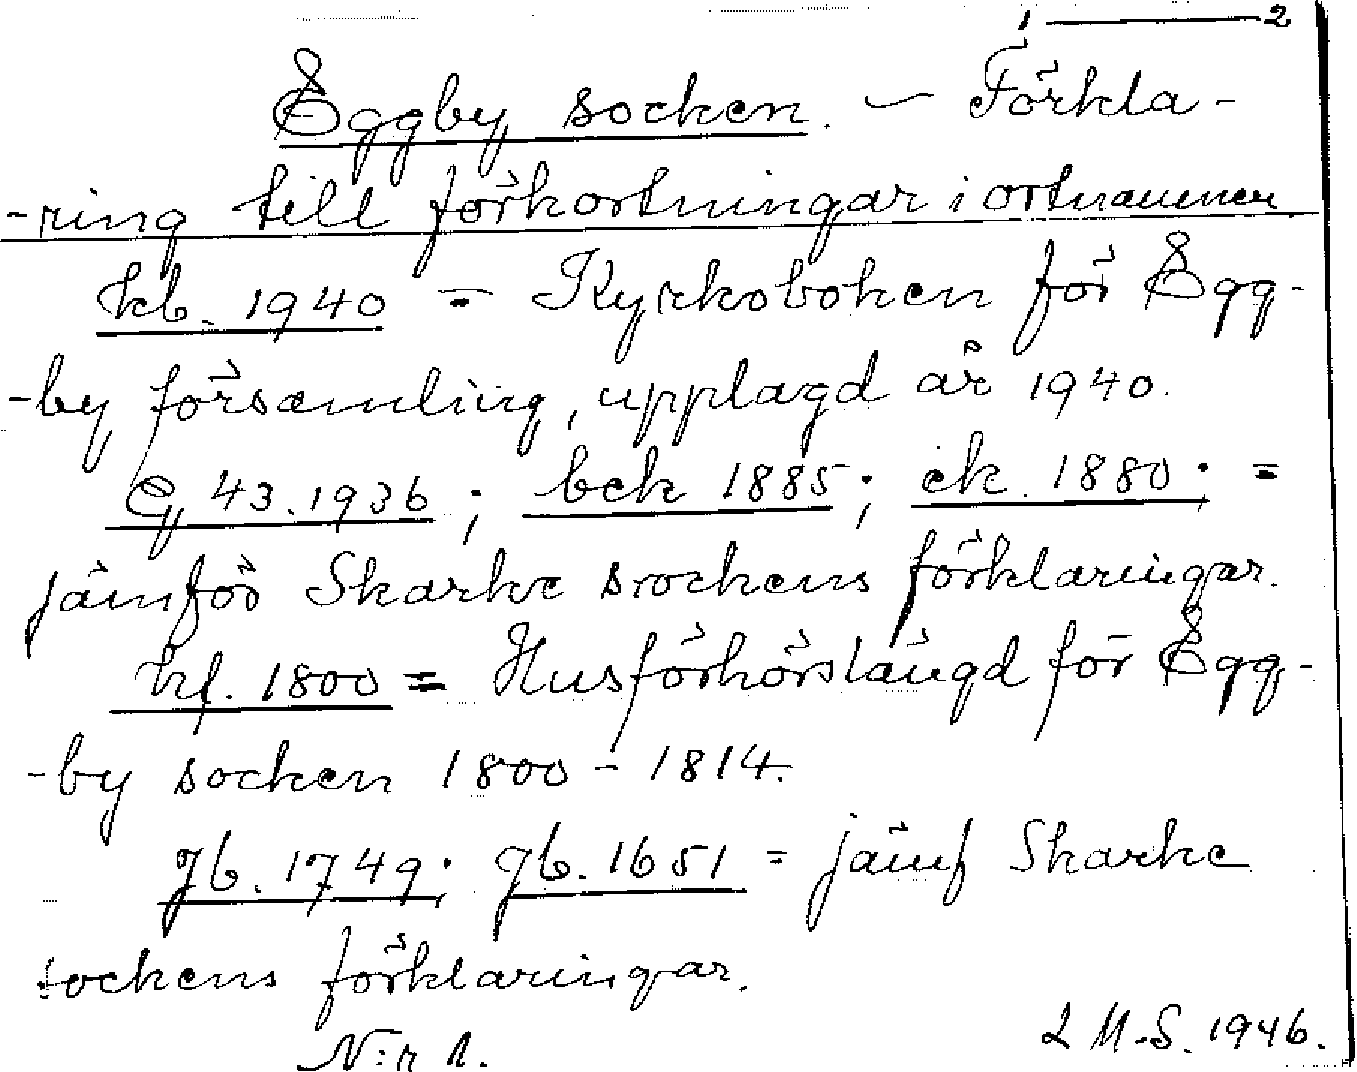 1 — 2
Eggby socken. — Förkla-
-ring till förkortningar i ortnamnen
kb. 1940 = Kyrkoboken för Egg-
-by församling, upplagd år 1940.
Eg 43.1936; bck 1885; ck. 1880; =
jämför Skarke sockens förklaringar.
hf. 1800 = Husförhörslängd för Egg-
-by socken 1800 - 1814.
jb. 1749; jb. 1651 = jämf Skarke
sockens förklaringar.
N:r 1.
L M.S. 1946.